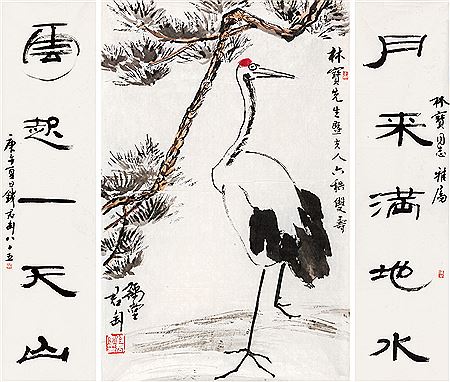 月来满地水
林寶同志雅属
林寶先生暨夫人六秩雙壽
豫堂
君匋
雲起一天山
庚午夏日錢君匋八十五